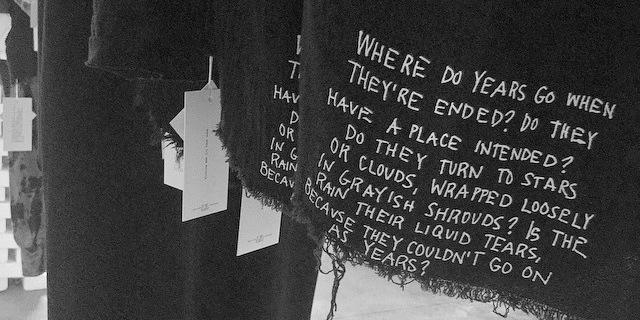 WHERE DO YEARS GO WHEN
THEY'RE ENDED? DO THEY
HAVE A PLACE INTENDED?
DO THEY TURN TO STARS
OR CLOUDS, WRAPPED LOOSELY
IN GRAYISH SHROUDS? IS THE
RAIN THEIR LIQUID TEARS,
BECAUSE THEY COULDN'T GO ON
AS YEARS?
HAV
OR
IN G
RAIN
BECAU